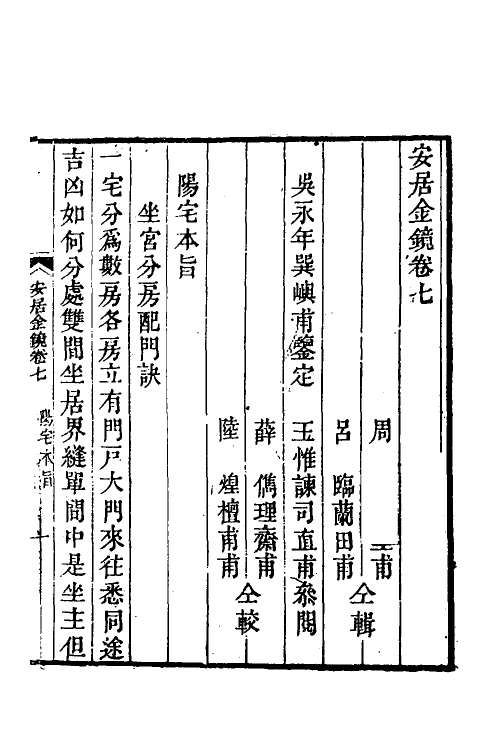 安居金鏡卷七
周 甫
呂 臨蘭田甫 仝輯
吳永年巽嶼甫鑒定 王惟諫司直甫叅閱
薛 儁理齋甫
陸 煌檀甫甫 仝較
陽宅本旨
坐宮分房配門訣
一宅分爲數房各房立有門戸大門來往悉同途
吉凶如何分處雙間坐居界縫單間中是坐主但
安居金鏡卷七 陽宅本旨 一